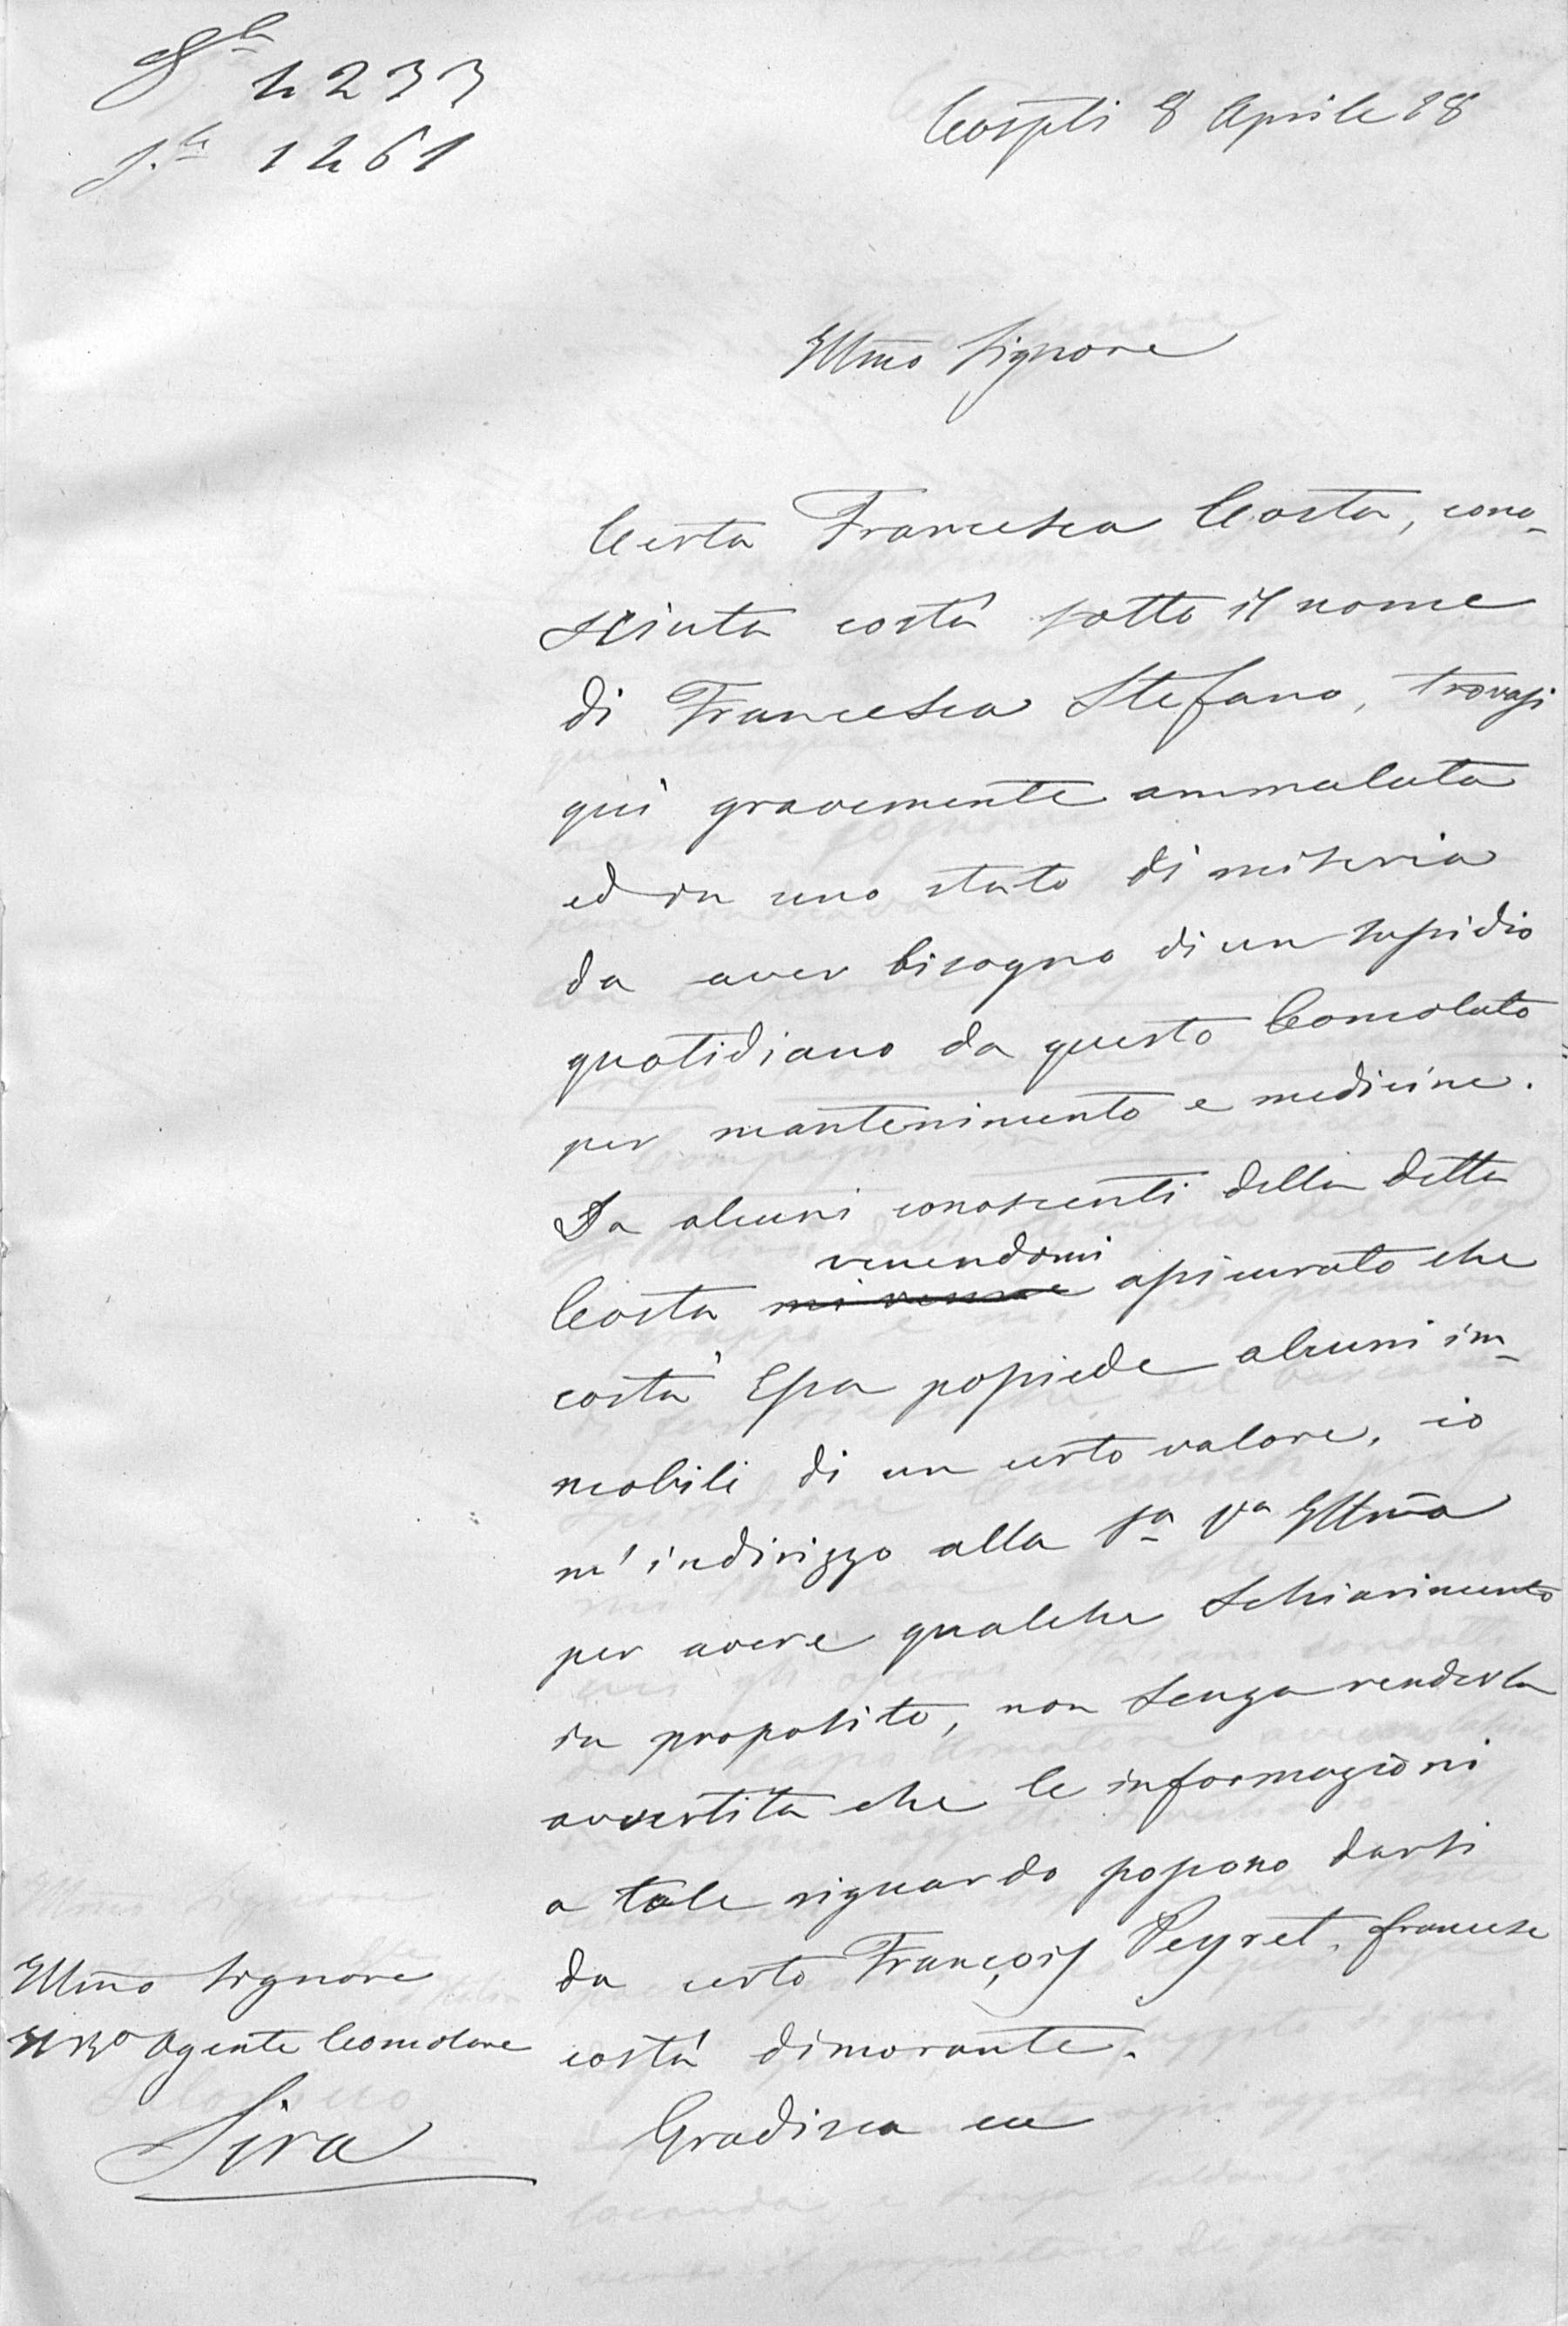 Gle 1233
Sle 1261
Cospli 8 Aprile 88
Illmo Signore
Certa Francesca Costa, cono-
sciuta costà sotto il nome
di Francesca Stefano, trovasi
quì gravemente ammalata
ed in uno stato di miseria
da aver bisogno di un sussidio
quotidiano da questo Consolato
per mantenimento e medicine.
Da alcuni conoscenti della detta
venendomi
Costa mi venne assicurato che
costà Essa possiede alcuni im-
mobili di un certo valore, io
m'indirizzo alla Sa Va Illma
per avere qualche schiarimento
in proposito, non senza renderla
avvertita che le informazioni
a tale riguardo possono darsi
da certo François Peyret, francese
costà dimorante.
Gradisca ecc
Illmo Signore
Il Ro Agente Consolare
Sira